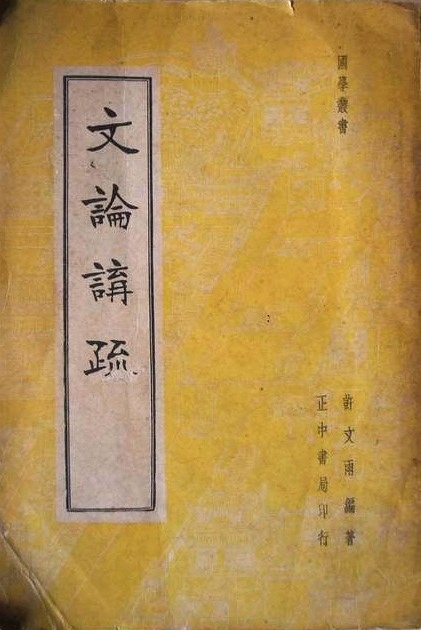 國學叢書
文論講疏
許文雨編著
正中書局印行